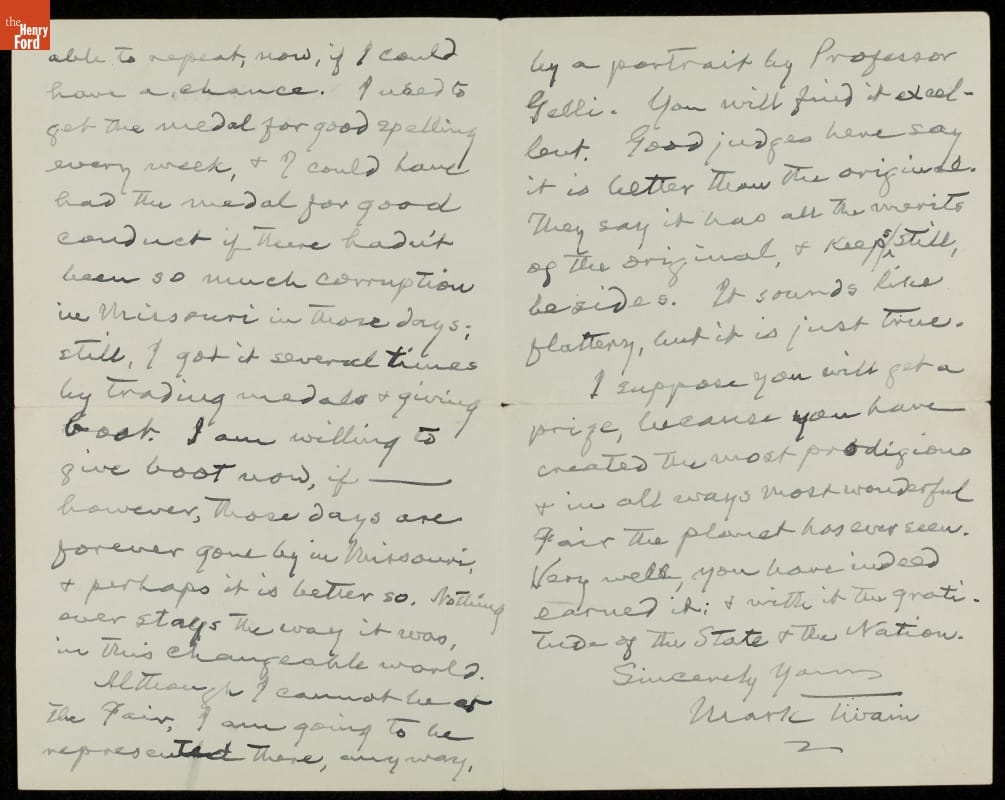 the
Henry
Ford
able to repeat, now, if I could
have a chance. I used to
get the medal for good spelling
every week, & I could have
had the medal for good
conduct if there hadn't
been so much corruption
in Missouri in those days;
still, I got it several times
by trading medals & giving
boot. I am willing to
give boot now, if ——
however, those days are
forever gone by in Missouri,
& perhaps it is better so. Nothing
ever stays the way it was,
in this changeable world.
Although I cannot be at
the Fair, I am going to be
represented there, anyway,
by a portrait by Professor
Gelli. You will find it excel-
lent. Good judges here say
it is better than the original.
They say it has all the merits
of the original, & keeps still,
besides. It sounds like
flattery, but it is just true.
I suppose you will get a
prize, because you have
created the most prodigious
& in all ways most wonderful
Fair the planet has ever seen.
Very well, you have indeed
earned it; & with it the grati-
tude of the State & the Nation.
Sincerely Yours
Mark Twain